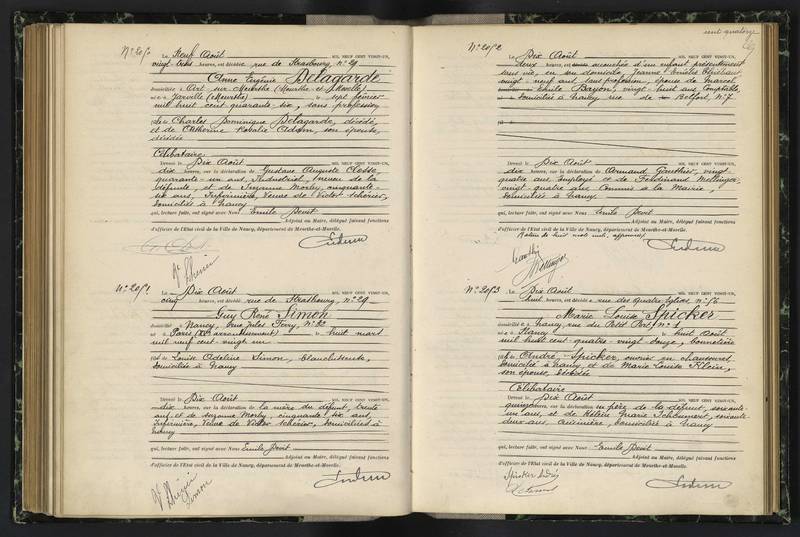 Le Neuf Août MIL NEUF CENT VINGT-UN,
heures, est décédée rue de Strasbourg, n° 29
Anne Eugénie Delagarde
domiciliée à Art sur Meurthe (Meurthe et Moselle)
née à Jarville (Meurthe) le sept février
mil huit cent quarante six, sans profession
fille de Charles Dominique Delagarde, décédé,
et de Catherine Rosalie Adam, son épouse,
décédée
Célibataire
Dressé le Dix Août MIL NEUF CENT VINGT-UN,
dix heures, sur la déclaration de Gustave Auguste
quarante-un ans, Industriel, neveu de la
défunte, et de Suzanne Morby cinquante-
six ans, Infirmière, Veuve de Victor Schérier,
domiciliés à Nancy
qui, lecture faite, ont signé avec Nous Emile
Adjoint au Maire, délégué faisant fonctions
d'officier de l'Etat civil de la Ville de Nancy, département de Meurthe-et-Moselle.
N° 2051
Le Dix Août MIL NEUF CENT VINGT-UN,
cinq heures, est décédé rue de Strasbourg, n° 29
Guy René Simon
domicilié à Nancy, rue Jules Ferry, n° 32
né à Paris le huit mars
mil neuf cent vingt un
fils de Louise Odeline Simon, Blanchisseuse,
domiciliée à Nancy
Dressé le Dix Août MIL NEUF CENT VINGT-UN,
dix heures, sur la déclaration de la mère du défunt, trente
ans, et de Suzanne Morby cinquante six ans,
Infirmière, Veuve de Victor Schérier, domiciliées à
Nancy
qui, lecture faite, ont signé avec Nous Emile
Adjoint au Maire, délégué faisant fonctions
d'officier de l'Etat civil de la Ville de Nancy, département de Meurthe-et-Moselle.
Simon
cent quatorze
N° 2052
Le Dix Août MIL NEUF CENT VINGT-UN,
deux heures, est accouchée d'un enfant présentement
sans vie, en son domicile, Jeanne
vingt-neuf ans sans profession, épouse de Marcel
Emile Bayon, vingt-huit ans, Comptable,
domiciliés à Nancy rue de Belfort, n° 7
Dressé le Dix Août MIL NEUF CENT VINGT-UN,
dix heures, sur la déclaration de Armand Gauthier, vingt-
quatre ans Employé et de Ferdinand Mellinger,
vingt-quatre ans Commis à la Mairie,
domiciliés à Nancy
qui, lecture faite, ont signé avec Nous Emile
Adjoint au Maire, délégué faisant fonctions
d'officier de l'Etat civil de la Ville de Nancy, département de Meurthe-et-Moselle.
Gauthier
Mellinger
N° 2053
Le Dix Août MIL NEUF CENT VINGT-UN,
huit heures, est décédée rue des Quatre Eglises n° 56
Marie Louise Spicker
domiciliée à Nancy rue du n° 1
née à Nancy le huit Août
mil huit cent quatre-vingt-douze, bonnetière
fille de André Spicker, ouvrier en chaussures
domicilié à Nancy et de Marie Louise Klein,
son épouse, décédée
Célibataire
Dressé le Dix Août MIL NEUF CENT VINGT-UN,
quinze heures, sur la déclaration du père de la défunte, soixante-
un ans, et de Hélène Marie soixante-
deux ans, domiciliés à Nancy
qui, lecture faite, ont signé avec Nous Emile
Adjoint au Maire, délégué faisant fonctions
d'officier de l'Etat civil de la Ville de Nancy, département de Meurthe-et-Moselle.
Spicker André